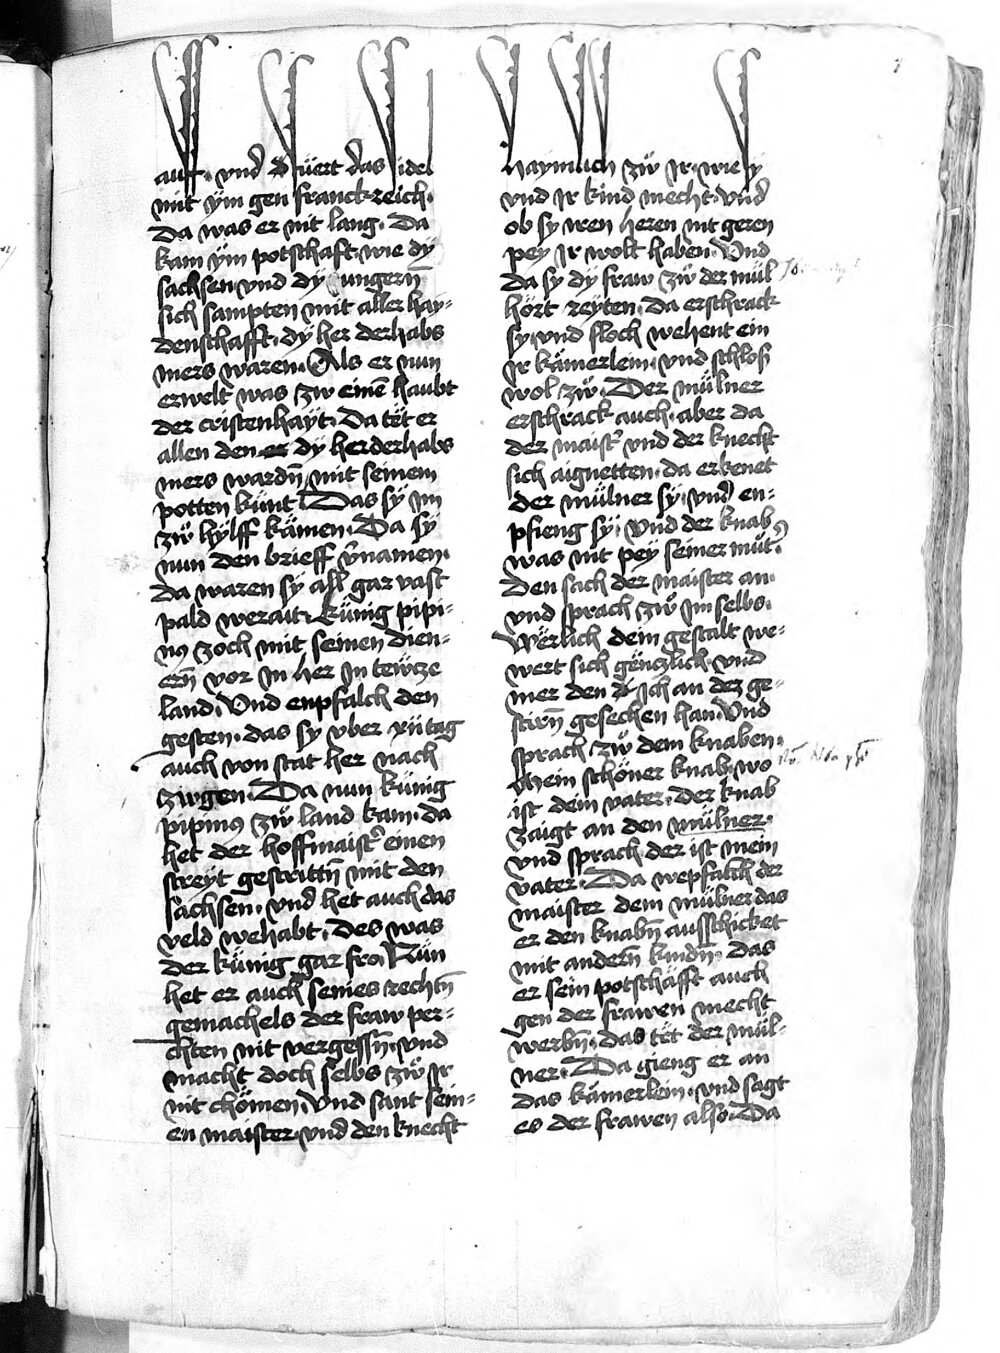 auff. vnd Ffüert das sidel
mit ym gen franckreich.
Da was er nit lang. Da
kam ÿm potschafft. wie dy
sachsen vnd dÿ ungern̄
sich sampten mit aller hay-
denschafft. dÿ her derhabs
mers waren. Als er nun
erwelt was zw einē haubt
der cristenhaÿt. Da tët er
allen den dy her derhabs
mers wardn̄ mit seinem
potten kunt Das sÿ im
zẅ hylff kämen. Da sy
nun den brieff v̄namen.
da waren sÿ all gar vast
pald werait. Künig pipi-
nꝰ zoch mit seinen dien-
ern̄ vor In her In tewtze
land. Vnd enpfalch den
gesten. das sy vber xii tag
auch von stat her nach
zwgen. Da nun künig
pipinꝰ zẅ land kam. da
het der hoffmaistr̄ einen
streÿt gestrittn̄ mit den
sachsen. vnd het auch das
veld wehabt. Des was
der künig gar fro. Nün
het er auch seines rechtn̄
gemachels der fraw per-
chten nit vergessn̄. vnd
macht doch selbs zẅ Ir
nit chömen. Vnd sant sein-
en maister. vnd den knecht
haymlich zẅ Ir. wie sy
vnd Ir kind mecht. vnd
ob sy iren heren nit geren
pey Ir wolt haben. Vnd
da sy dÿ fraw zẅ der mül
hört reÿten. da erschrack
sy. vnd floch wehent ein
Ir kämerlein. vnd schloß
wol zẅ. Der mülner
erschrack auch. aber da
der maistr̄ vnd der knecht
sich aignetten. da erkenet
der mülner sÿ. vnd en-
pfieng sÿ. Vnd der knab
was nit pey seiner müt.
Den sach der maister an.
vnd sprach zẅ Im selbs.
Wërlich dein gestalt we-
wert sich gëntzlich. vnd
mer den Ich an dez ge-
stirn̄ gesechen han. Vnd
sprach zẅ dem knaben.
Mein schöner knab. wo
ist dein vater. der knab
zaigt an den mülner.
vnd sprach. der ist mein
vater. Da wepfalch der
maister dem mülner das
er den knabn̄ ausschicket
mit andern̄ kindn̄. Das
er sein potschäfft auch
gen der frawen mecht
werbn̄. das tët der mül-
ner. Da gieng er an
das kämerlein. vnd sagt
es der frawen also. Da